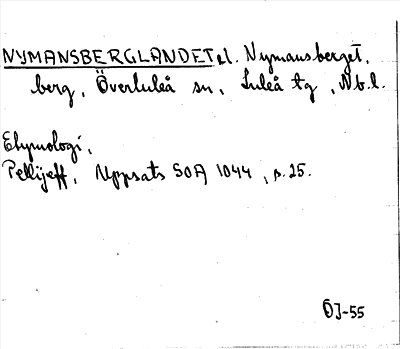 NYMANSBERGLANDET el. Nymansberget,
berg, Överluleå sn, Luleå tg, Nb.l.
Etymologi,
Pellijeff, Uppsats SOA 1044, s. 25.
ÖJ-55